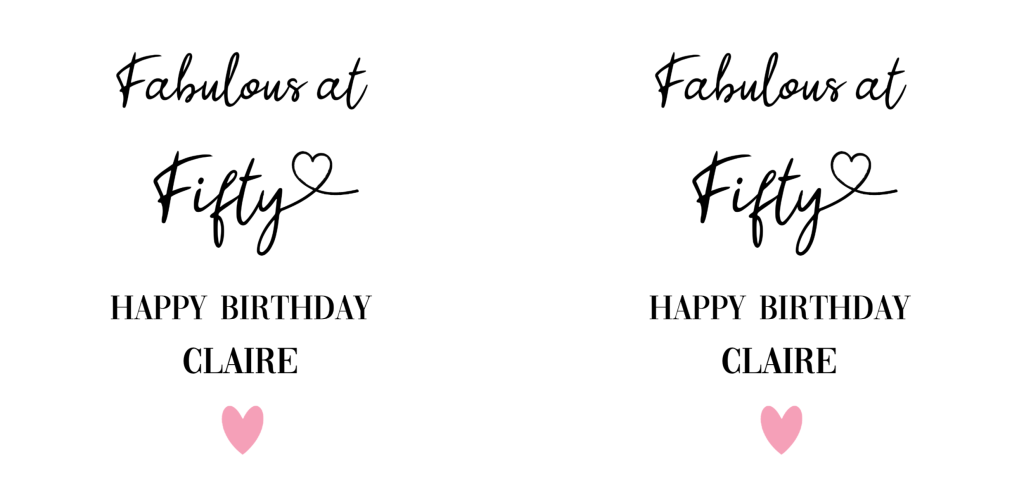 Fabulous at
Fifty
HAPPY BIRTHDAY
CLAIRE
Fabulous at
Fifty
HAPPY BIRTHDAY
CLAIRE